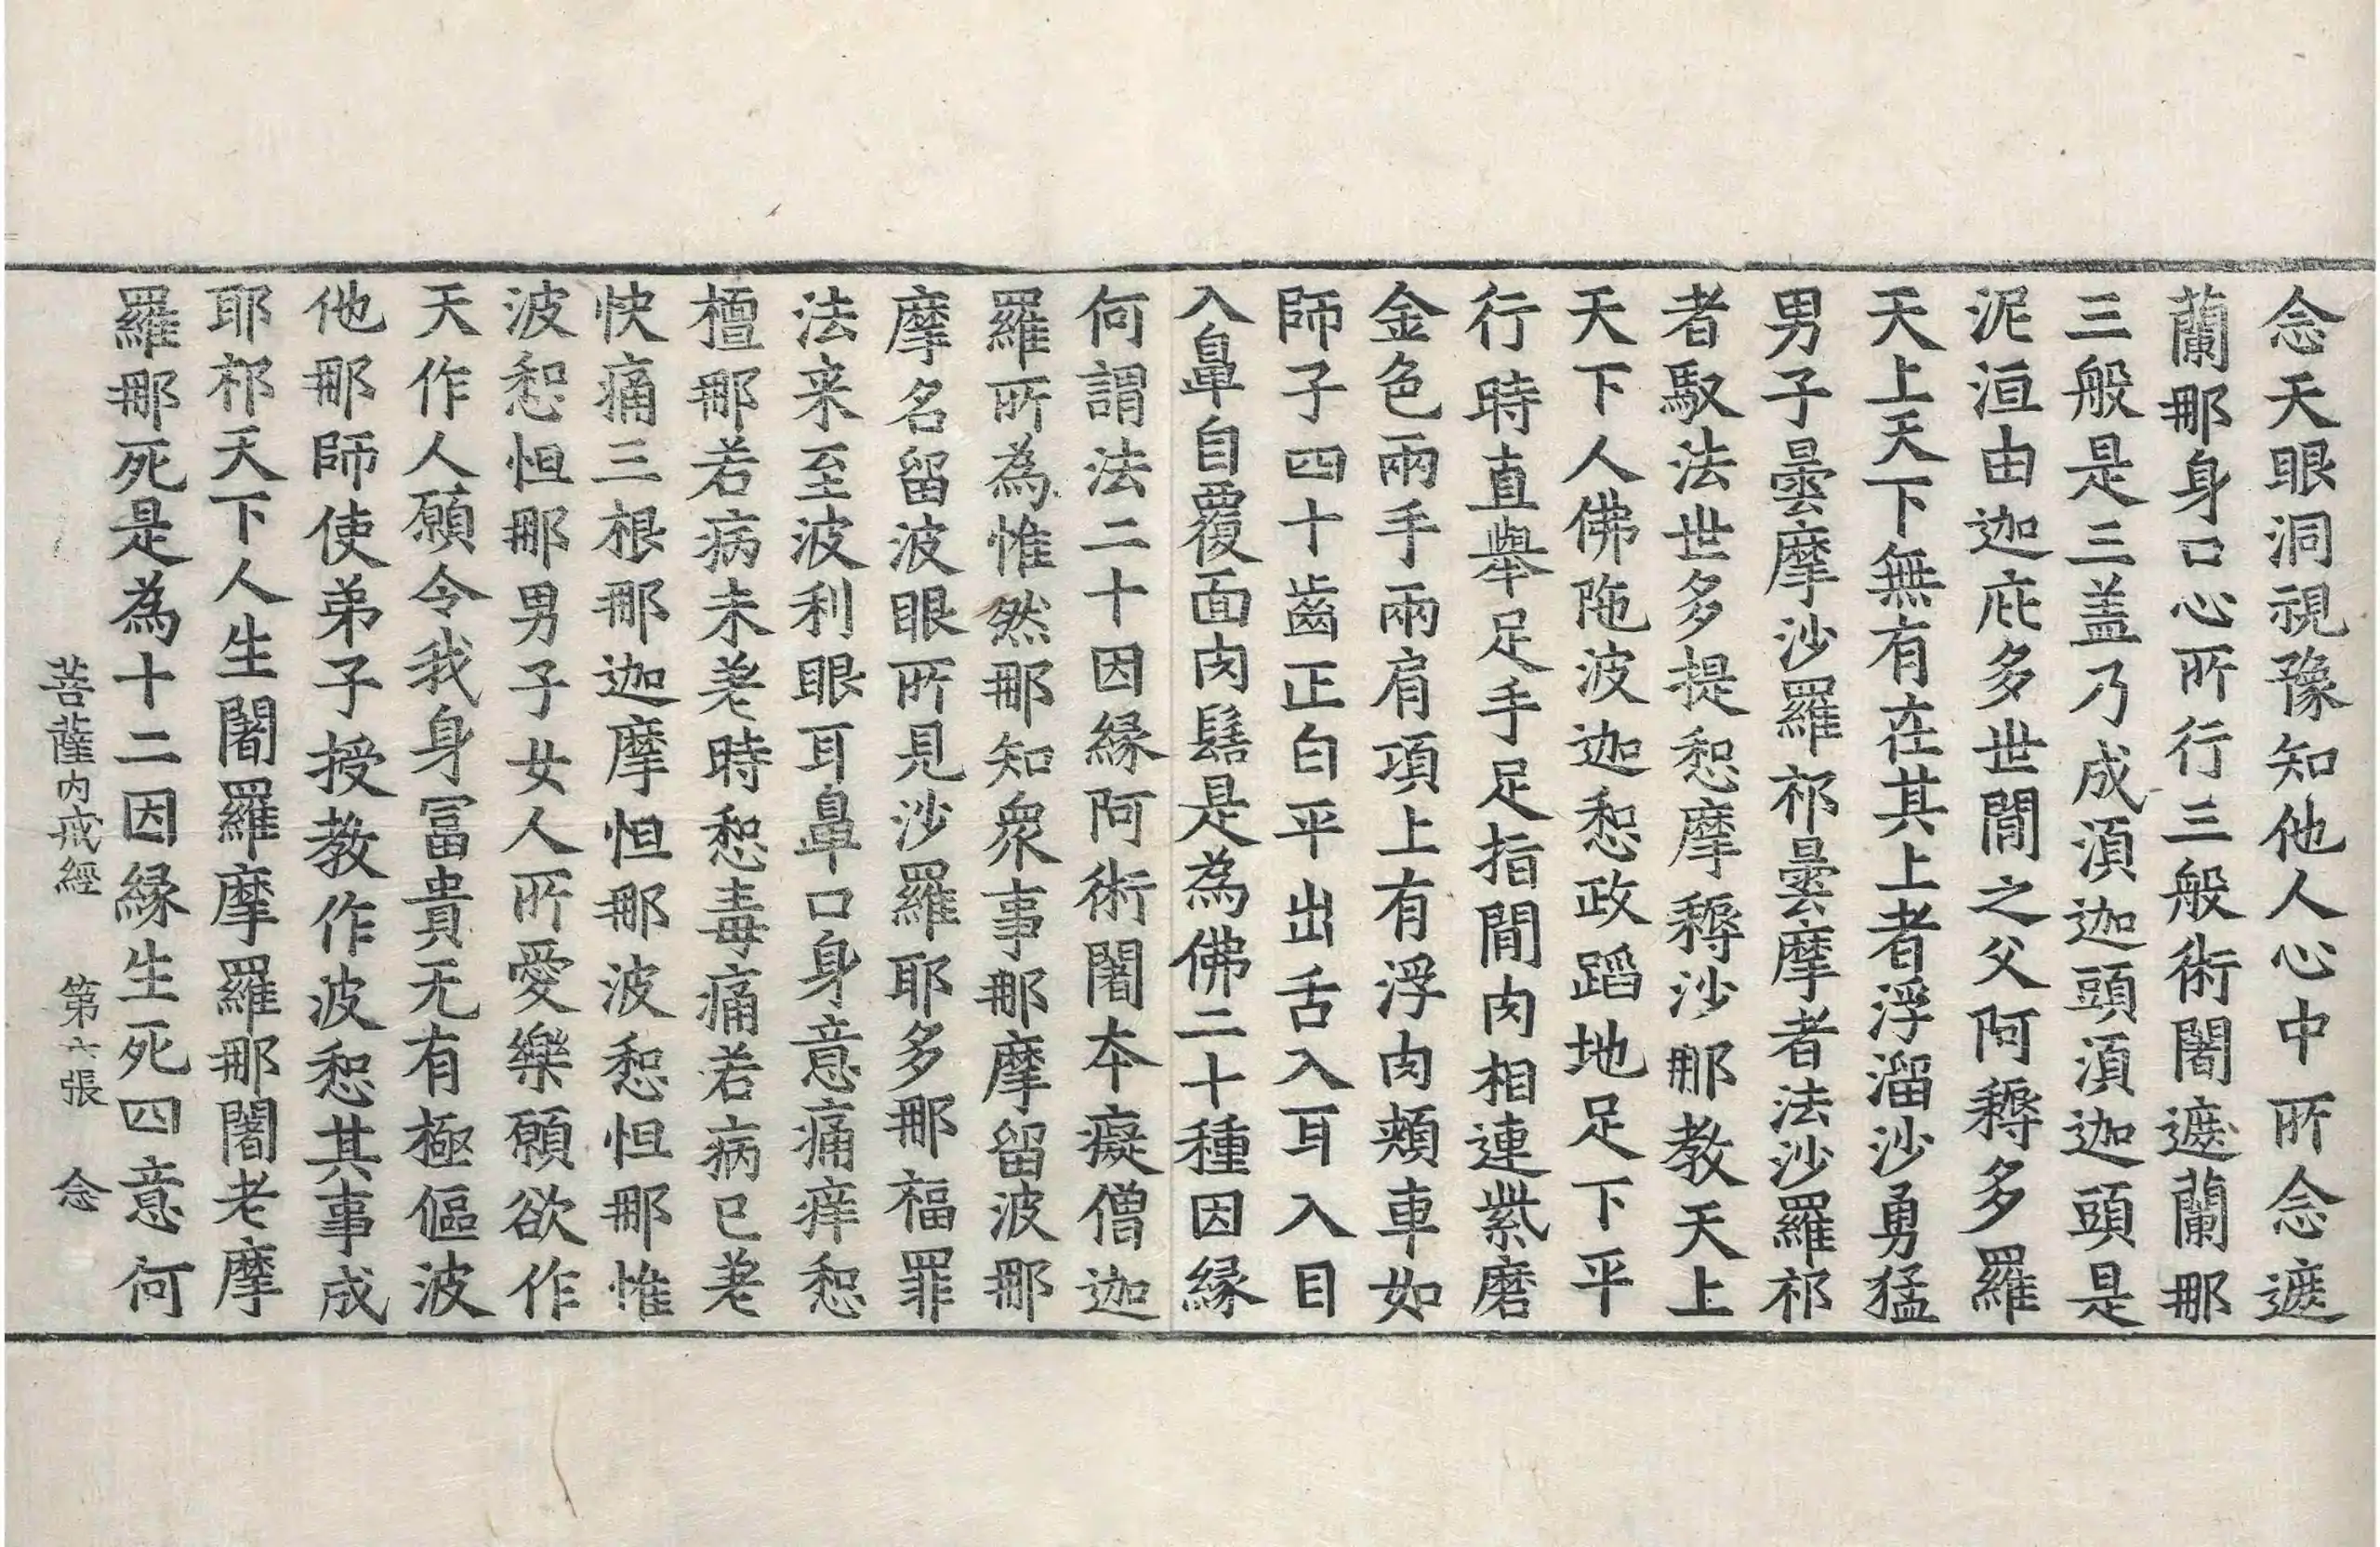 念天眼洞視豫知他人心中所念遮
蘭那身口心所行三般術闍遮蘭那
三般是三盖乃成湏迦頭湏迦頭是
泥洹由迦庇多世間之父阿耨多羅
天上天下無有在其上者浮溜沙勇猛
男子曇摩沙羅祁曇摩者法沙羅祁
者馭法世多提惒摩耨沙那教天上
天下人佛陁波迦惒政蹈地足下平
行時直舉足手足指間肉相連紫磨
金色兩手兩肩項上有浮肉頰車如
師子四十齒正白平出舌入耳入目
入鼻自覆面肉髻是為佛二十種因縁
何謂法二十因縁阿術闍本癡僧迦
羅所為惟然那知衆事那摩留波那
摩名留波眼所見沙羅耶多那福罪
法来至波利眼耳鼻口身意痛痒惒
檀那若病未老時惒毒痛若病已老
快痛三根那迦摩怛那波惒怛那惟
波惒怛那男子女人所愛樂願欲作
天作人願令我身冨貴无有極傴波
他那師使弟子授教作波惒其事成
耶祁天下人生闍羅摩羅那闍老摩
羅那死是為十二因縁生死四意何
菩薩内戒經 第六張 念